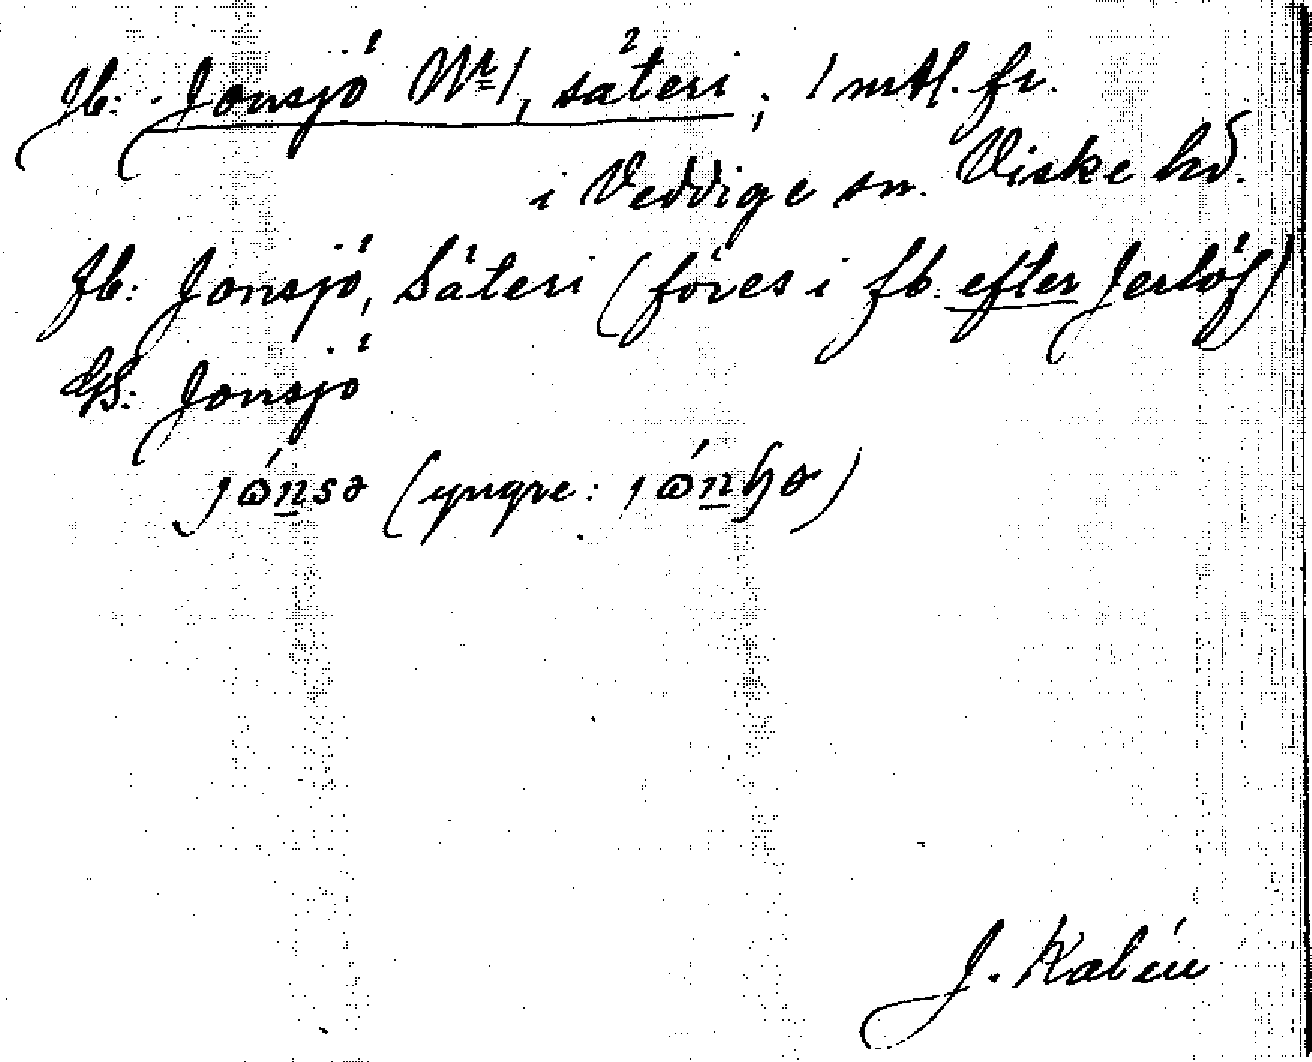 Jb: Jonsjö No 1, säteri; 1 mtl. fr.
i Veddige sn. Viske hd.
fb: Jonsjö, Säteri (föres i fb. efter Jerlöf)
GS: Jonsjö
(yngre: )
J. Kalén